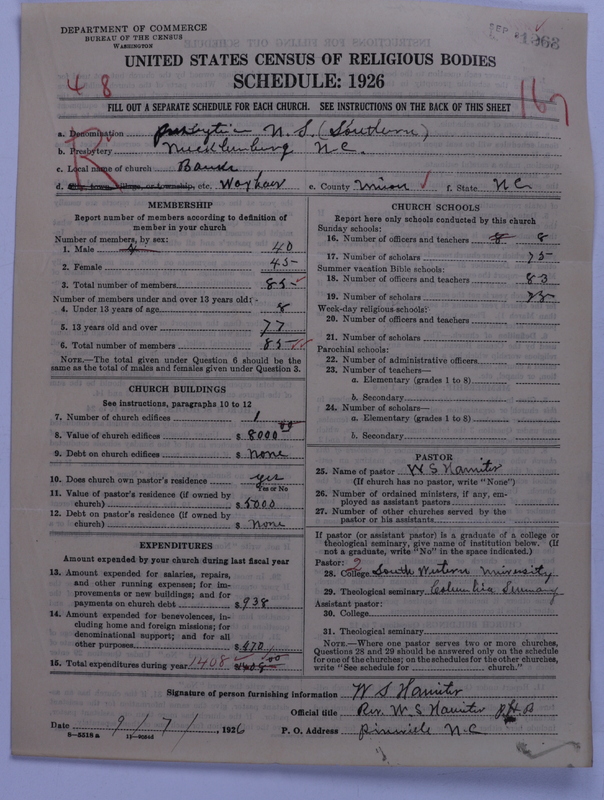 DEPARTMENT OF COMMERCE
BUREAU OF THE CENSUS
WASHINGTON
SEP 1963
UNITED STATES CENSUS OF RELIGIOUS BODIES
4 8 SCHEDULE: 1926 167
FILL OUT A SEPARATE SCHEDULE FOR EACH CHURCH. SEE INSTRUCTIONS ON THE BACK OF THIS SHEET
R
a. Denomination U.S. (Southern)
b. Presbytery Mecklenburg N.C.
c. Local name of church Banks
d. City, town, village, or township, etc. Waxhaw e. County Union f. State N.C.
MEMBERSHIP
Report number of members according to definition of member in your church
Number of members, by sex:
1. Male 40
2. Female 45
3. Total number of members 85
Number of members under and over 13 years old:
4. Under 13 years of age 8
5. 13 years old and over 77
6. Total number of members 85
NOTE.—The total given under Question 6 should be the same as the total of males and females given under Question 3.
CHURCH BUILDINGS
See instructions, paragraphs 10 to 12
7. Number of church edifices 1
8. Value of church edifices $ 8000 00
9. Debt on church edifices $ None
10. Does church own pastor's residence yes
Yes or No
11. Value of pastor's residence (if owned by church) $ 5000
12. Debt on pastor's residence (if owned by church) $ None
EXPENDITURES
Amount expended by your church during last fiscal year
13. Amount expended for salaries, repairs, and other running expenses; for improvements or new buildings; and for payments on church debt $ 938
14. Amount expended for benevolences, including home and foreign missions; for denominational support; and for all other purposes $ 470
15. Total expenditures during year 1408 $ 1408 00
CHURCH SCHOOLS
Report here only schools conducted by this church
Sunday schools:
16. Number of officers and teachers 8 8
17. Number of scholars 75
Summer vacation Bible schools:
18. Number of officers and teachers 83
19. Number of scholars
Week-day religious schools:
20. Number of officers and teachers
21. Number of scholars
Parochial schools:
22. Number of administrative officers
23. Number of teachers—
a. Elementary (grades 1 to 8)
b. Secondary
24. Number of scholars—
a. Elementary (grades 1 to 8) $
b. Secondary $
PASTOR
25. Name of pastor W S Hamiter
(If church has no pastor, write "None")
26. Number of ordained ministers, if any, employed as assistant pastors
27. Number of other churches served by the pastor or his assistants
If pastor (or assistant pastor) is a graduate of a college or theological seminary, give name of institution below. (If not a graduate, write "No" in the space indicated.)
Pastor: 2
28. College South Western University
29. Theological seminary Columbia Seminary
Assistant pastor:
30. College
31. Theological seminary
NOTE.—Where one pastor serves two or more churches, Questions 28 and 29 should be answered only on the schedule for one of the churches; on the schedules for the other churches, write "See schedule for church."
Signature of person furnishing information W S Hamiter
Official title Rev. W. S. Hamiter
Date 9/7/, 1926 P. O. Address Pineville N.C.
8-5518 a